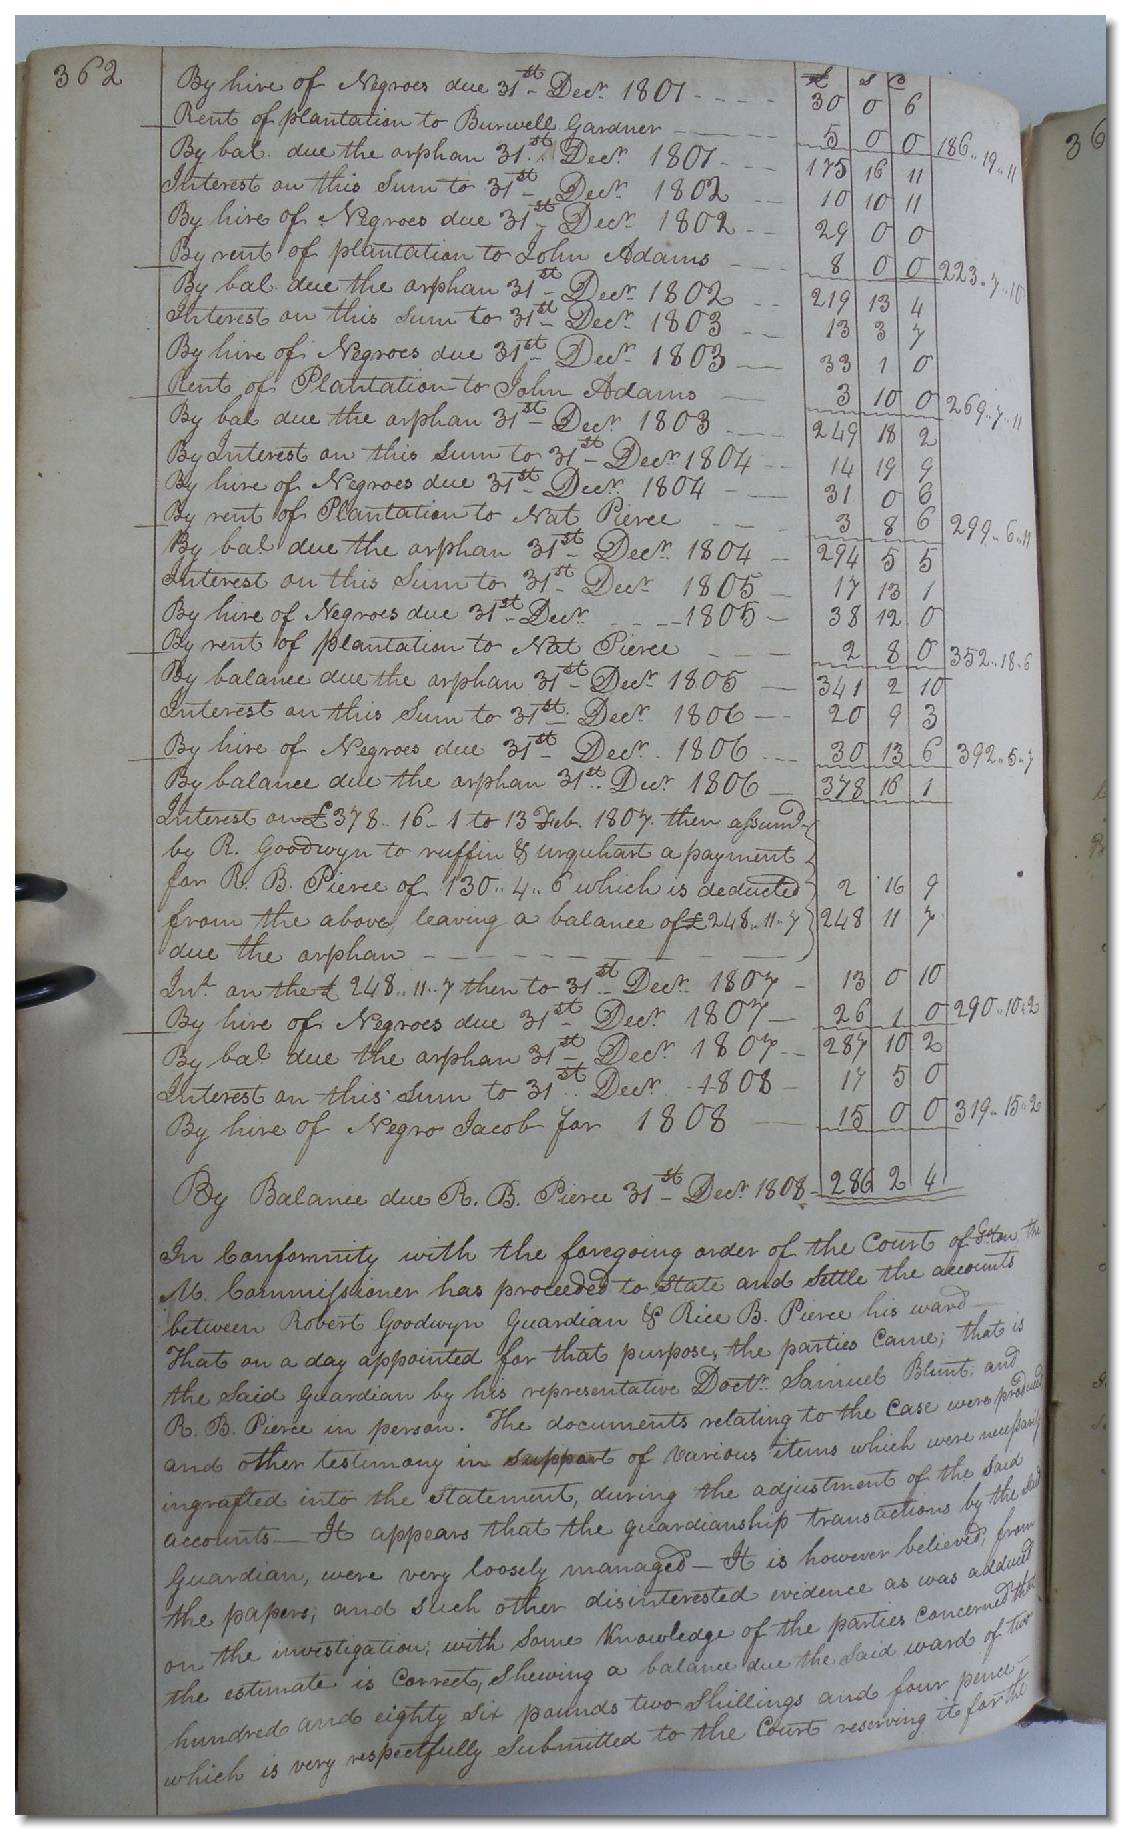 362
£ S C
By hire of Negroes due 31st Decr. 1801 - - - - 30 0 6
Rent of plantation to Burwell Gardner - - - 5 0 0 186.. 19.. 11
By bal. due the orphan 31st Decr. 1801 - - - 175 16 11
Interest on this Sum to 31st Decr. 1802 - - 10 10 11
By hire of Negroes due 31st Decr. 1802 - - 29 0 0
By rent of plantation to John Adams - - - 8 0 0 223.. 7.. 10
By bal. due the orphan 31st Decr. 1802 - - 219 13 4
Interest on this Sum to 31st Decr. 1803 - - 13 3 7
By hire of Negroes due 31st Decr. 1803 - - 33 1 0
Rent of Plantation to John Adams - - 3 10 0 269.. 7.. 11
By bal due the orphan 31st Decr. 1803 - - 249 18 2
By Interest on this Sum to 31st Decr. 1804 - - 14 19 9
By hire of Negroes due 31st Decr. 1804 - - 31 0 6
By rent of Plantation to Nat Pierce - - - 3 8 6 299.. 6.. 11
By bal. due the orphan 31st Decr. 1804 - 294 5 5
Interest on this Sum to 31st Decr. 1805 - 17 13 1
By hire of Negroes due 31st Decr. - - - 1805 - 38 12 0
By rent of plantation to Nat Pierce - - - 2 8 0 352.. 18.. 6
By balance due the orphan 31st Decr. 1805 - 341 2 10
Interest on this Sum to 31st Decr. 1806 - - 20 9 3
By hire of Negroes due 31st Decr. 1806 - - - 30 13 6 392.. 5.. 7
By balance due the orphan 31st Decr. 1806 - 378 16 1
Interest on £378.. 16 - 1 to 13 Feb. 1807. then assumd.
by R. Goodwyn to ruffin & urquhart a payment
for R. B. Pierce of 130.. 4.. 6 which is deducted 2 16 9
from the above, leaving a balance of £248.. 11.. 7 248 11 7
due the orphan - - - - - -
Int. on the £ 248.. 11.. 7 then to 31st Decr. 1807 - 13 0 10
By hire of Negroes due 31st Decr. 1807 - 26 1 0 290.. 10.. 2
By bal. due the orphan 31st Decr. 1807 - - 287 10 2
Interest on this Sum to 31st Decr. 1808 - 17 5 0
By hire of Negro Jacob for 1808 - - 15 0 0 319.. 15.. 2
By Balance due R. B. Pierce 31st Decr. 1808 - 286 2 4
In Conformity with the foregoing order of the Court of S:ton, the
M. Commissioner has proceeded to State and Settle the accounts
between Robert Goodwyn Guardian & Rice B. Pierce his ward -
That on a day appointed for that purpose, the parties came; that is
the Said Guardian by his representative Doctr. Samuel Blunt. and
R. B. Pierce in person. The documents relating to the case were produced
and other testimony in support of various items which were necessarily
ingrafted into the Statement, during the adjustment of the Said
accounts - It appears that the guardianship transactions by the Said
Guardian, were very loosely managed - It is however believed, from
the papers, and such other disinterested evidence as was adduced
on the investigation; with Some Knowledge of the parties concerned that
the estimate is correct, Shewing a balance due the Said ward of two
hundred and eighty Six pounds two Shillings and four pence -
which is very respectfully Submitted to the Court reserving it for the
36